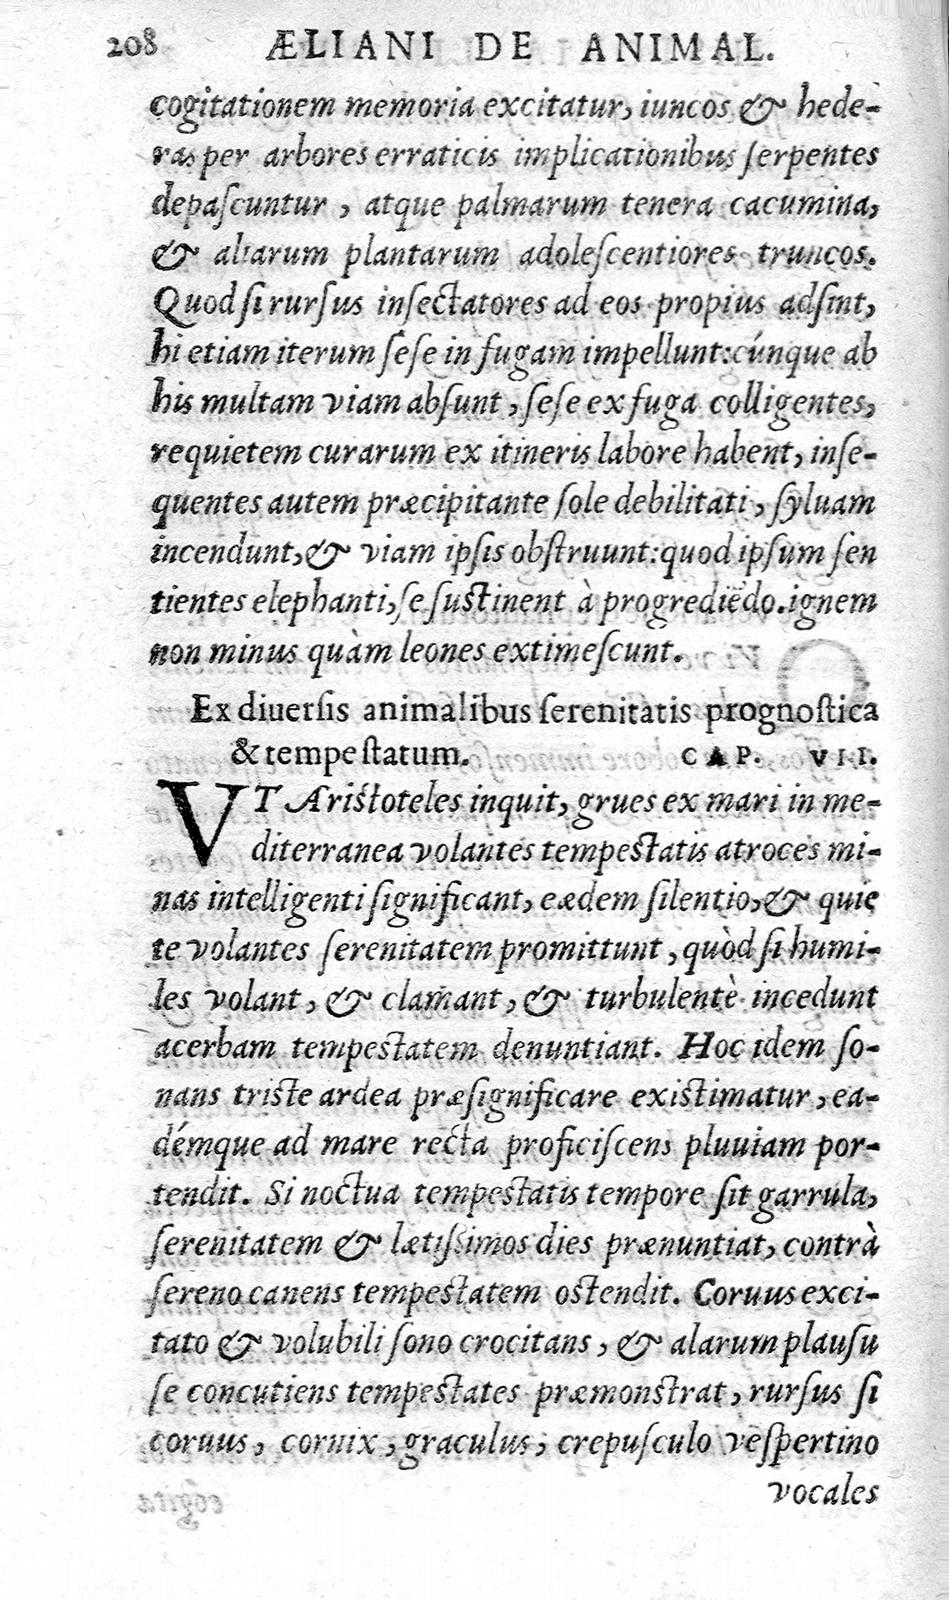 208 ÆLIANI DE ANIMAL.
cogitationem memoria excitatur, iuncos & hede-
ras per arbores erraticis implicationibus ſerpentes
depaſcuntur, atque palmarum tenera cacumina,
& aliarum plantarum adoleſcentiores truncos.
Quod ſi rurſus inſectatores ad eos propius adſint,
hi etiam iterum ſeſe in fugam impellunt: cúnque ab
his multam viam abſunt, ſeſe ex fuga colligentes,
requietem curarum ex itineris labore habent, inſe-
quentes autem præcipitante ſole debilitati, ſyluam
incendunt, & viam ipſis obſtruunt: quod ipſum ſen
tientes elephanti, ſe ſuſtinent à progrediẽdo. ignem
non minus quàm leones extimeſcunt.
Ex diuerſis animalibus ſerenitatis prognoſtica
& tempeſtatum. CAP. VII.
VT Ariſtoteles inquit, grues ex mari in me-
diterranea volantes tempeſtatis atroces mi-
nas intelligenti ſignificant, eædem ſilentio, & quie
te volantes ſerenitatem promittunt, quòd ſi humi-
les volant, & clamant, & turbulentè incedunt
acerbam tempeſtatem denuntiant. Hoc idem ſo-
nans triſte ardea præſignificare exiſtimatur, ea-
démque ad mare recta proficiſcens pluuiam por-
tendit. Si noctua tempeſtatis tempore ſit garrula,
ſerenitatem & lætiſſimos dies prænuntiat, contrà
ſereno canens tempeſtatem oſtendit. Coruus exci-
tato & volubili ſono crocitans, & alarum plauſu
ſe concutiens tempeſtates præmonſtrat, rurſus ſi
coruus, cornix, graculus, crepuſculo veſpertino
vocales